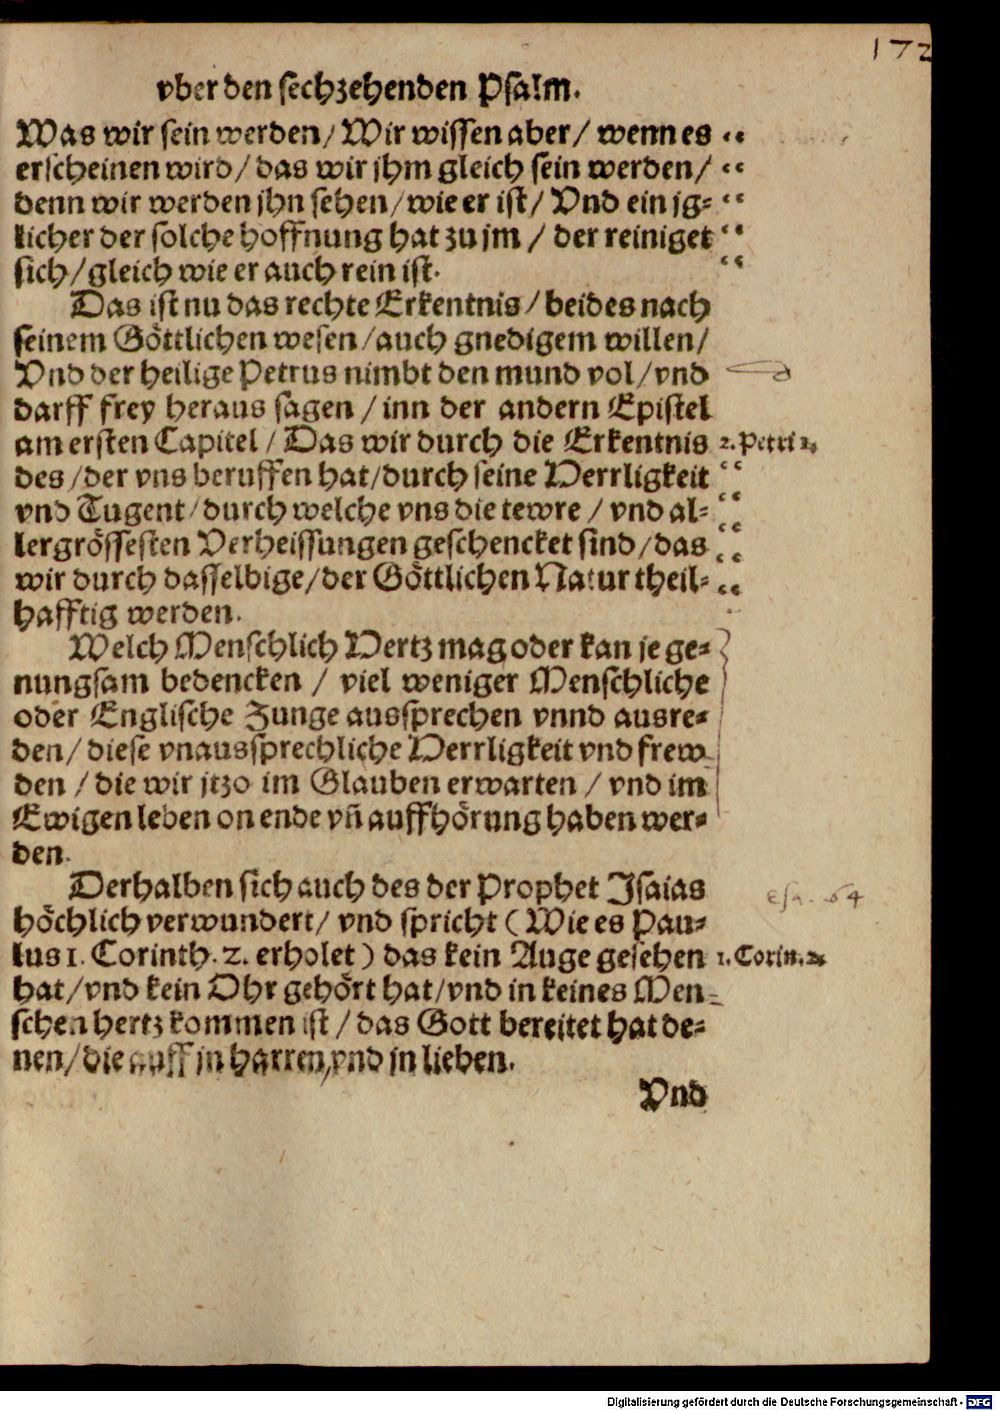 172
vber den sechzehenden Psalm.
Was wir sein werden/ Wir wissen aber/ wenn es
erscheinen wird/ das wir jhm gleich sein werden/
denn wir werden jhn sehen/ wie er ist/ Vnd ein jg-
licher der solche hoffnung hat zu jm / der reiniget
sich/ gleich wie er auch rein ist.
Das ist nu das rechte Erkentnis/ beides nach
seinem Göttlichen wesen/ auch gnedigem willen/
Vnd der heilige Petrus nimbt den mund vol/ vnd
darff frey heraus sagen / inn der andern Epistel
am ersten Capitel / Das wir durch die Erkentnis 2. Petri 1.
des/ der vns beruffen hat/ durch seine Herrligkeit
vnd Tugent/ durch welche vns die tewre / vnd al-
lergrössesten Verheissungen geschencket sind/ das
wir durch dasselbige/ der Göttlichen Natur theil-
hafftig werden.
Welch Menschlich Hertz mag oder kan je ge-
nungsam bedencken / viel weniger Menschliche
oder Englische Zunge aussprechen vnnd ausre-
den/ diese vnaussprechliche Herrligkeit vnd frew-
den / die wir jtzo im Glauben erwarten / vnd im
Ewigen leben on ende vn̄ auffhörung haben wer-
den.
Derhalben sich auch des der Prophet Isaias
höchlich verwundert/ vnd spricht (Wie es Pau- Esa. 64
lus 1. Corinth. 2. erholet) das kein Auge gesehen 1. Corin. 2.
hat/ vnd kein Ohr gehört hat/ vnd in keines Men-
schen hertz kommen ist / das Gott bereitet hat de-
nen/ die auff jn harren, vnd jn lieben.
Vnd
Digitalisierung gefördert durch die Deutsche Forschungsgemeinschaft - DFG